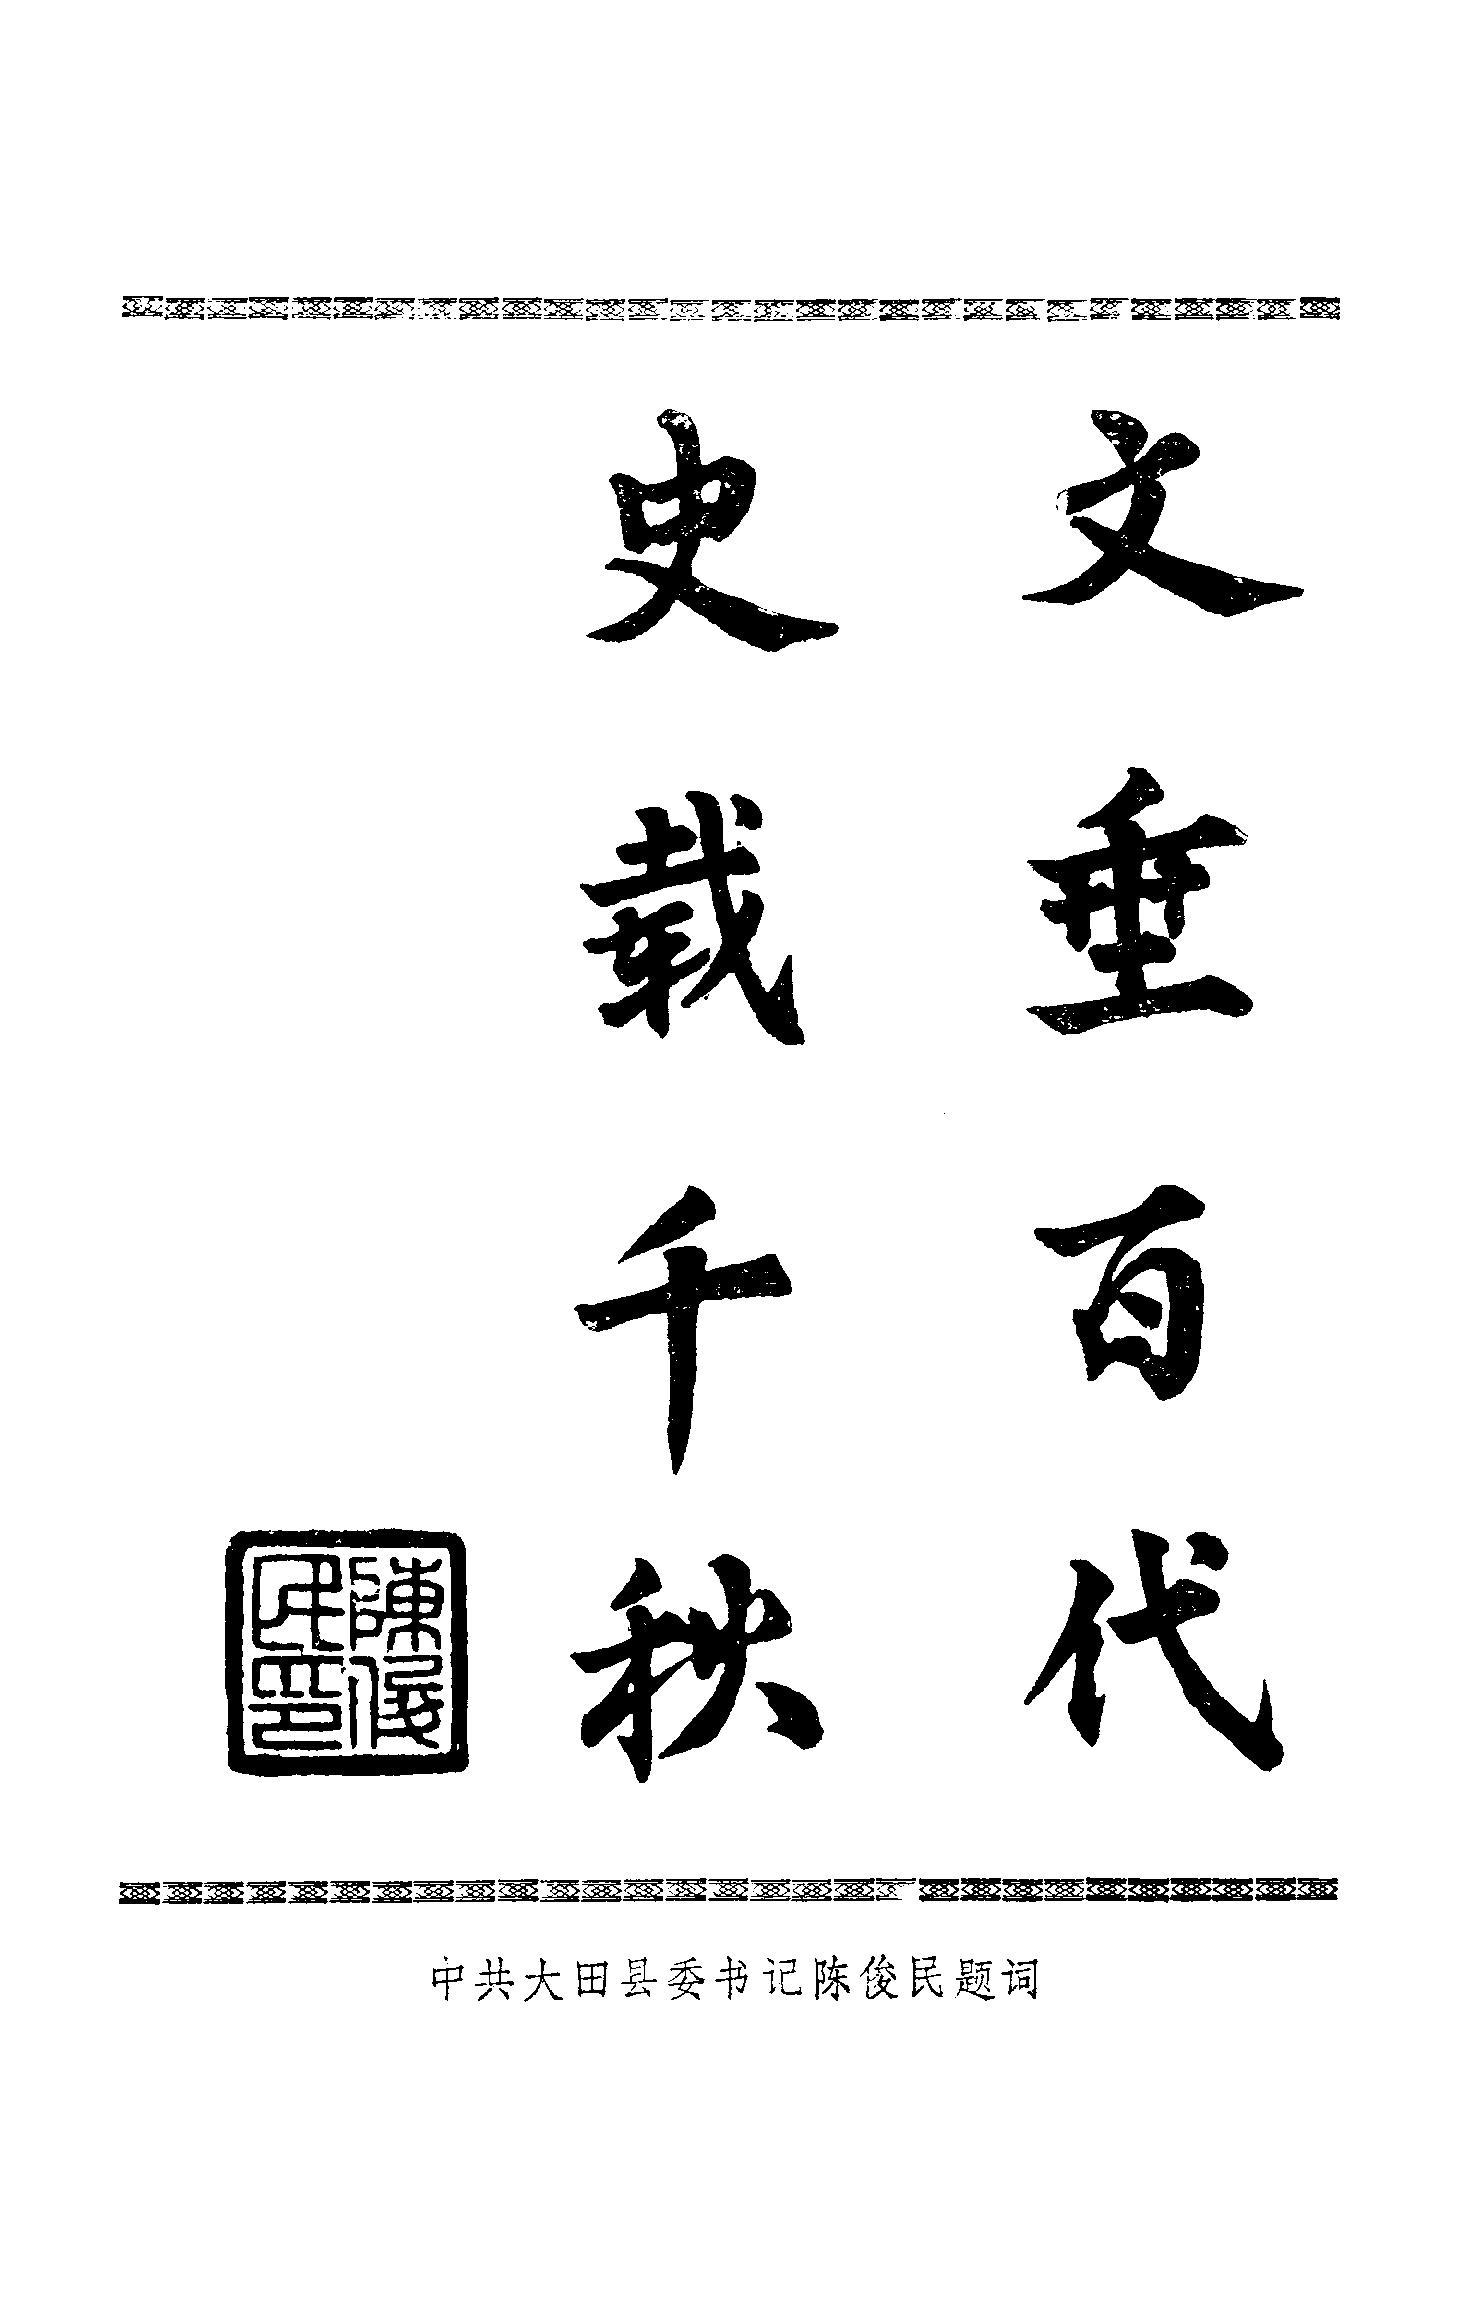 文垂百代
史载千秋
陳俊民印
中共大田县委书记陈俊民题词